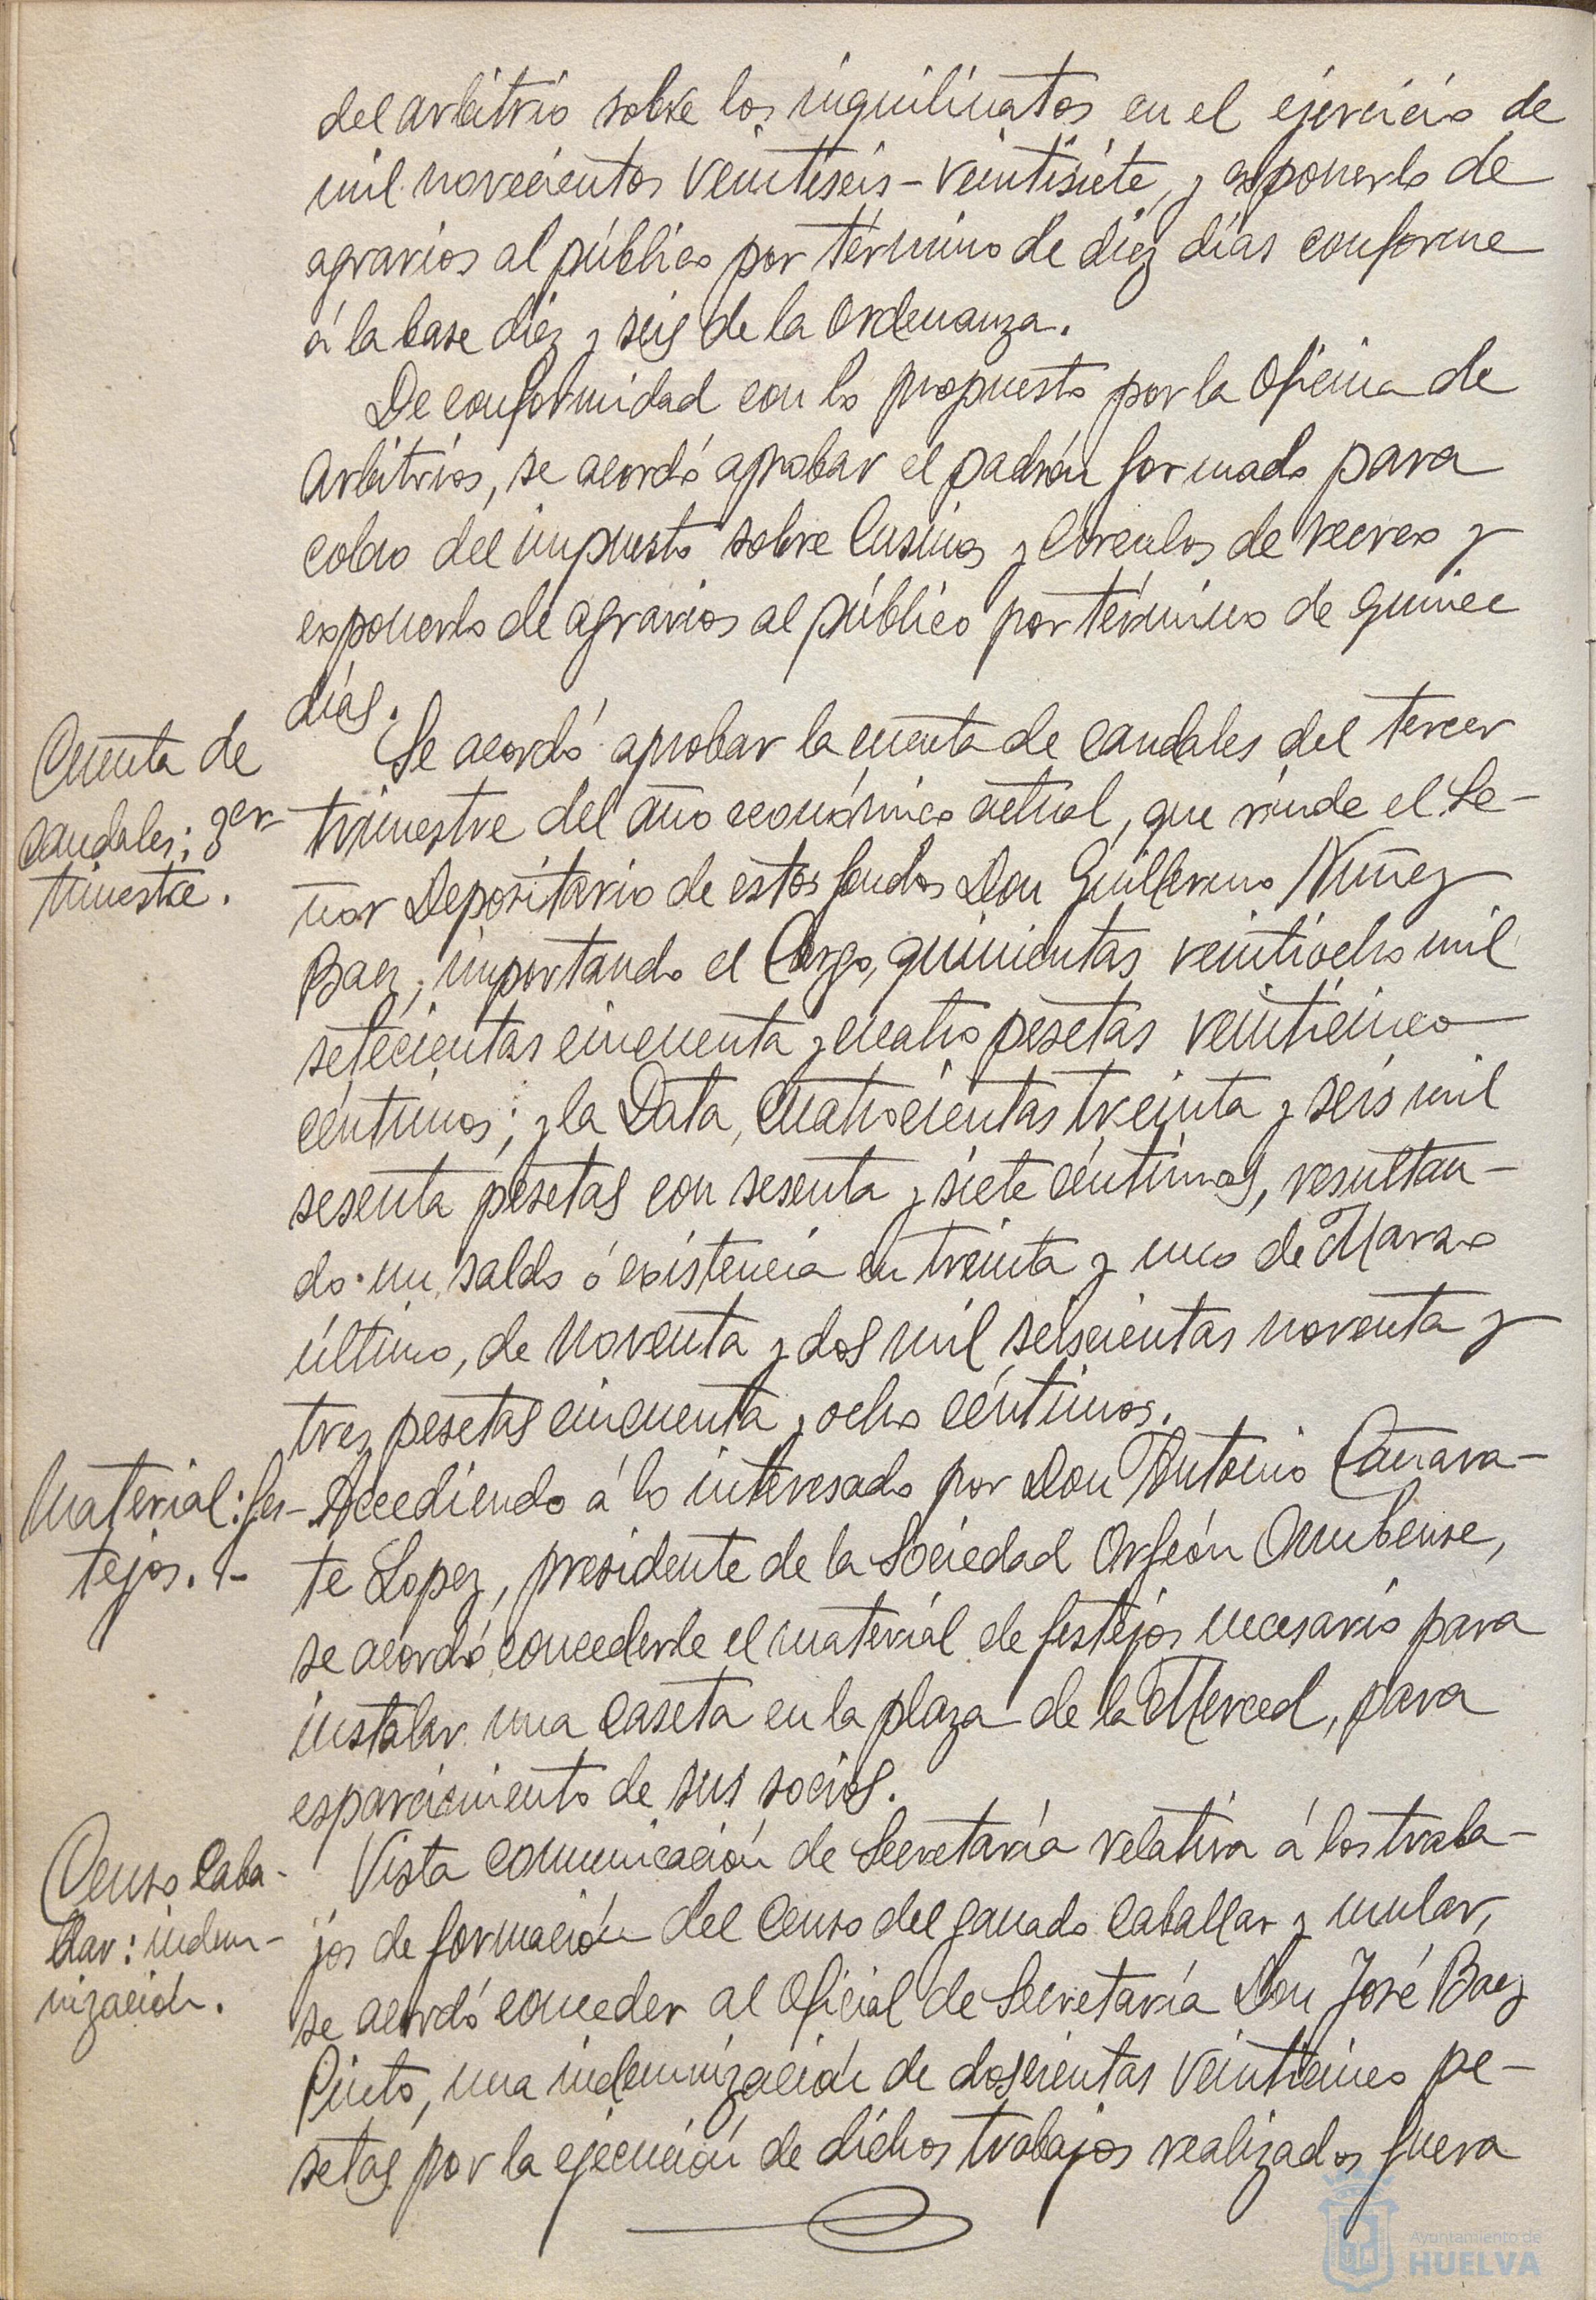 del arbitrio sobre los inquilinatos en el ejercicio de
mil novecientos veintiseis-veintisiete, y exponerlo de
agravios al público por término de diez días conforme
á la base diez y seis de la Ordenanza.
De conformidad con lo propuesto por la Oficina de
Arbitrios, se acordó aprobar el padrón formado para
cobro del impuesto sobre Casinos y Círculos de recreo y
exponerlo de agravios al público por término de quince
días.
Cuenta de
caudales; 3er
trimestre.
Se acordó aprobar la cuenta de caudales del tercer
trimestre del año económico actual, que rinde el Se-
ñor Depositario de estos fondos Don Guillermo Nuñez
Baez; importando el Cargo, quinientas veintiocho mil
setecientas cincuenta y cuatro pesetas veinticinco
céntimos; y la Data, cuatrocientas treinta y seis mil
sesenta pesetas con sesenta y siete céntimos, resultan-
do un saldo ó existencia en treinta y uno de Marzo
último, de noventa y dos mil seiscientas noventa y
tres pesetas cincuenta y ocho céntimos.
Material: fes-
tejos.
Accediendo á lo interesado por Don Antonio Cañava-
te Lopez, presidente de la Sociedad Orfeón Onubense,
se acordó concederle el material de festejos necesario para
instalar una caseta en la plaza de la Merced, para
esparcimiento de sus socios.
Censo Caba-
llar: indem-
nización.
Vista comunicación de Secretaría relativa á los traba-
jos de formación del Censo del ganado caballar y mular,
se acordó conceder al Oficial de Secretaría Don José Baez
Pinto, una indemnización de doscientas veinticinco pe-
setas por la ejecución de dichos trabajos realizados fuera
Ayuntamiento de
HUELVA